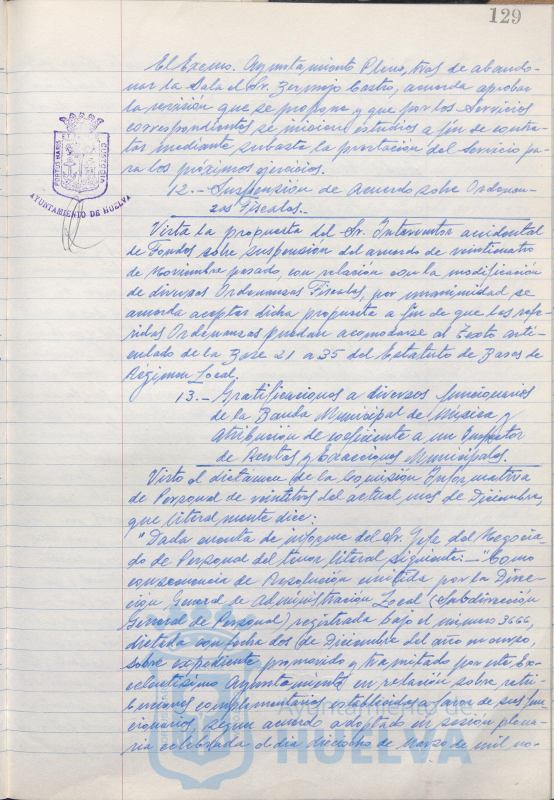 129
El Excmo. Ayuntamiento Pleno, tras de abando-
nar la Sala el Sr. Bermejo Castro, acuerda aprobar
la revisión que se propone y que por los Servicios
correspondientes se inicien estudios a fin de contra-
tar mediante subasta la prestación del Servicio pa-
ra los próximos ejercicios.
12.- Suspensión de Acuerdo sobre Ordenan-
zas Fiscales.-
Vista la propuesta del Sr. Interventor accidental
de Fondos sobre suspensión del acuerdo de veinticuatro
de Noviembre pasado, con relación con la modificación
de diversas Ordenanzas Fiscales, por unanimidad se
acuerda aceptar dicha propuesta a fin de que las refe-
ridas Ordenanzas puedan acomodarse al Texto arti-
culado de la Base 21 a 35 del Estatuto de Bases de
Régimen Local.
13.- Gratificaciones a diversos funcionarios
de la Banda Municipal de Música y
atribución de coeficiente a un Inspector
de Rentas y Exacciones Municipales.
Visto el dictamen de la Comisión Informativa
de Personal de veintitres del actual mes de Diciembre,
que literalmente dice:
"Dada cuenta de informe del Sr. Jefe del Negocia-
do de Personal del tenor literal siguiente:- "Como
consecuencia de Resolución emitida por la Direc-
ción General de Administración Local (Subdirección
General de Personal) registrada bajo el número 3666,
dictada con fecha dos de Diciembre del año en curso,
sobre expediente promovido y tramitado por este Ex-
celentísimo Ayuntamiento en relación sobre retri-
buciones complementarias establecidas a favor de sus fun-
cionarios, según acuerdo adoptado en sesión plena-
ria celebrada el día dieciocho de Marzo de mil no-
PORTUS MARIS CUSTODIA
AYUNTAMIENTO DE HUELVA
HUELVA